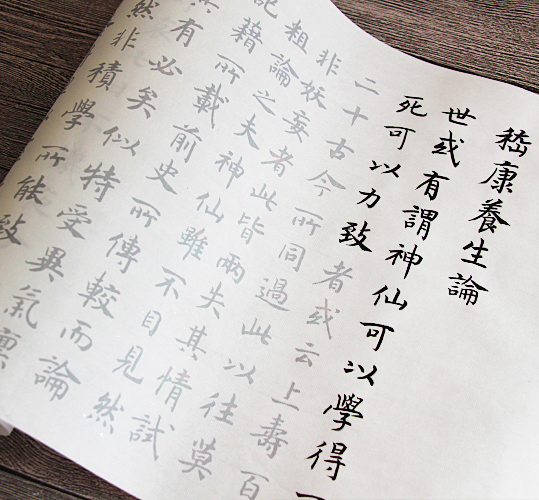 嵇康養生論
世或有謂神仙可以學得
死可以力致者或云上壽百
二十古今所同過此以往莫
非妖妄者此皆兩失其情試
粗論之夫神仙雖不目見然
記籍所載前史所傳較而論
其有必矣似特受異氣稟
然非積學所能致